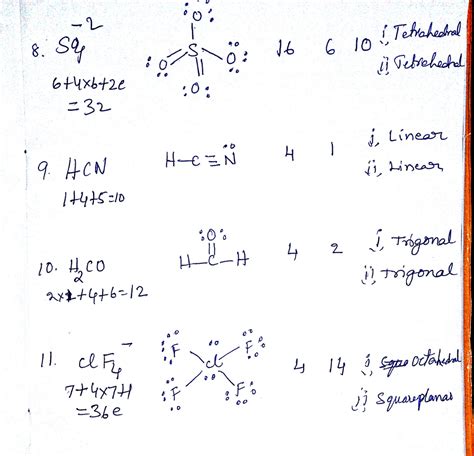 8. SO4 -2 16 6 10 i, Tetrahedral
ii, Tetrahedral
6+4x6+2e
= 32
9. HCN H-C≡N 4 1 i, Linear
ii, Linear
1+4+5=10
10. H2CO O
H-C-H 4 2 i, Trigonal
ii, Trigonal
2x1+4+6=12
11. ClF4 - F Cl F
F F 4 14 i, Octahedral
ii, Squareplanar
7+4x7+1
= 36e